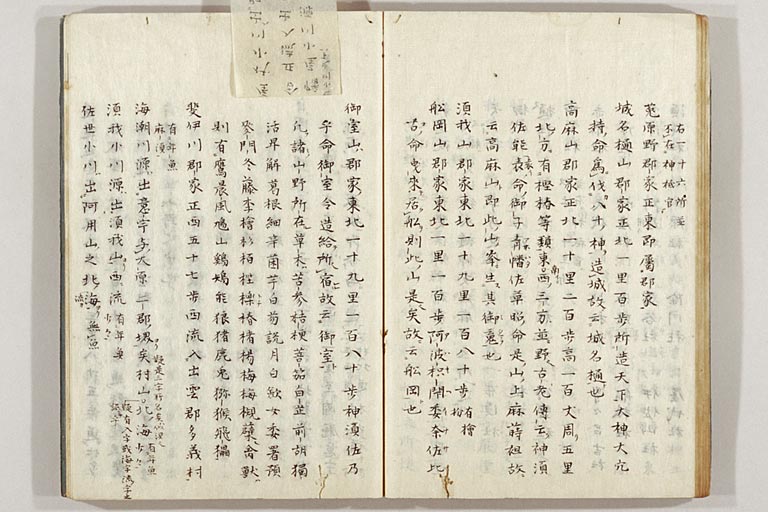 右一十六所並
不在神祇官
菟原野郡家正東即屬郡家
城名樋山郡家正北一里百歩所造天下大神大穴
持命爲伐八十神造城故云城名樋也
高麻山郡家正北一十里二百歩高一百丈周五里
北方有樫椿等類東南西三方並野古老傳云神須
佐能袁命御子青幡佐草昭命是山上麻蒔祖故
云高麻山即此山峯坐其御䰟也
須我山郡家東北一十九里一百八十歩有檜枌
舩岡山郡家東北一里一百歩阿波枳閇委奈佐比
古命曳来居舩則此山是矣故云舩岡也
御室山郡家東北一十九里一百八十歩神須佐乃
乎命御室令造給所宿故云御室
凢諸山野所在草木苦参桔梗菩茄白芷前胡獨
活卑解葛根細辛茵芋白芍説月白歛女委署預
麥門冬藤李檜杉栢樫櫟椿楮楊梅梅槻蘖禽獣
則有鷹晨風鳩山鷄鴙熊狼猪鹿兎獼猴飛猵
斐伊川郡家正西五十七歩西流入出雲郡多義村
有年魚
麻須
海潮川源出意宇与大原二郡堺矣村山北海有年魚少々
須我小川源出須我山西流有年魚少々
佐世小川出阿用山之北海流無魚